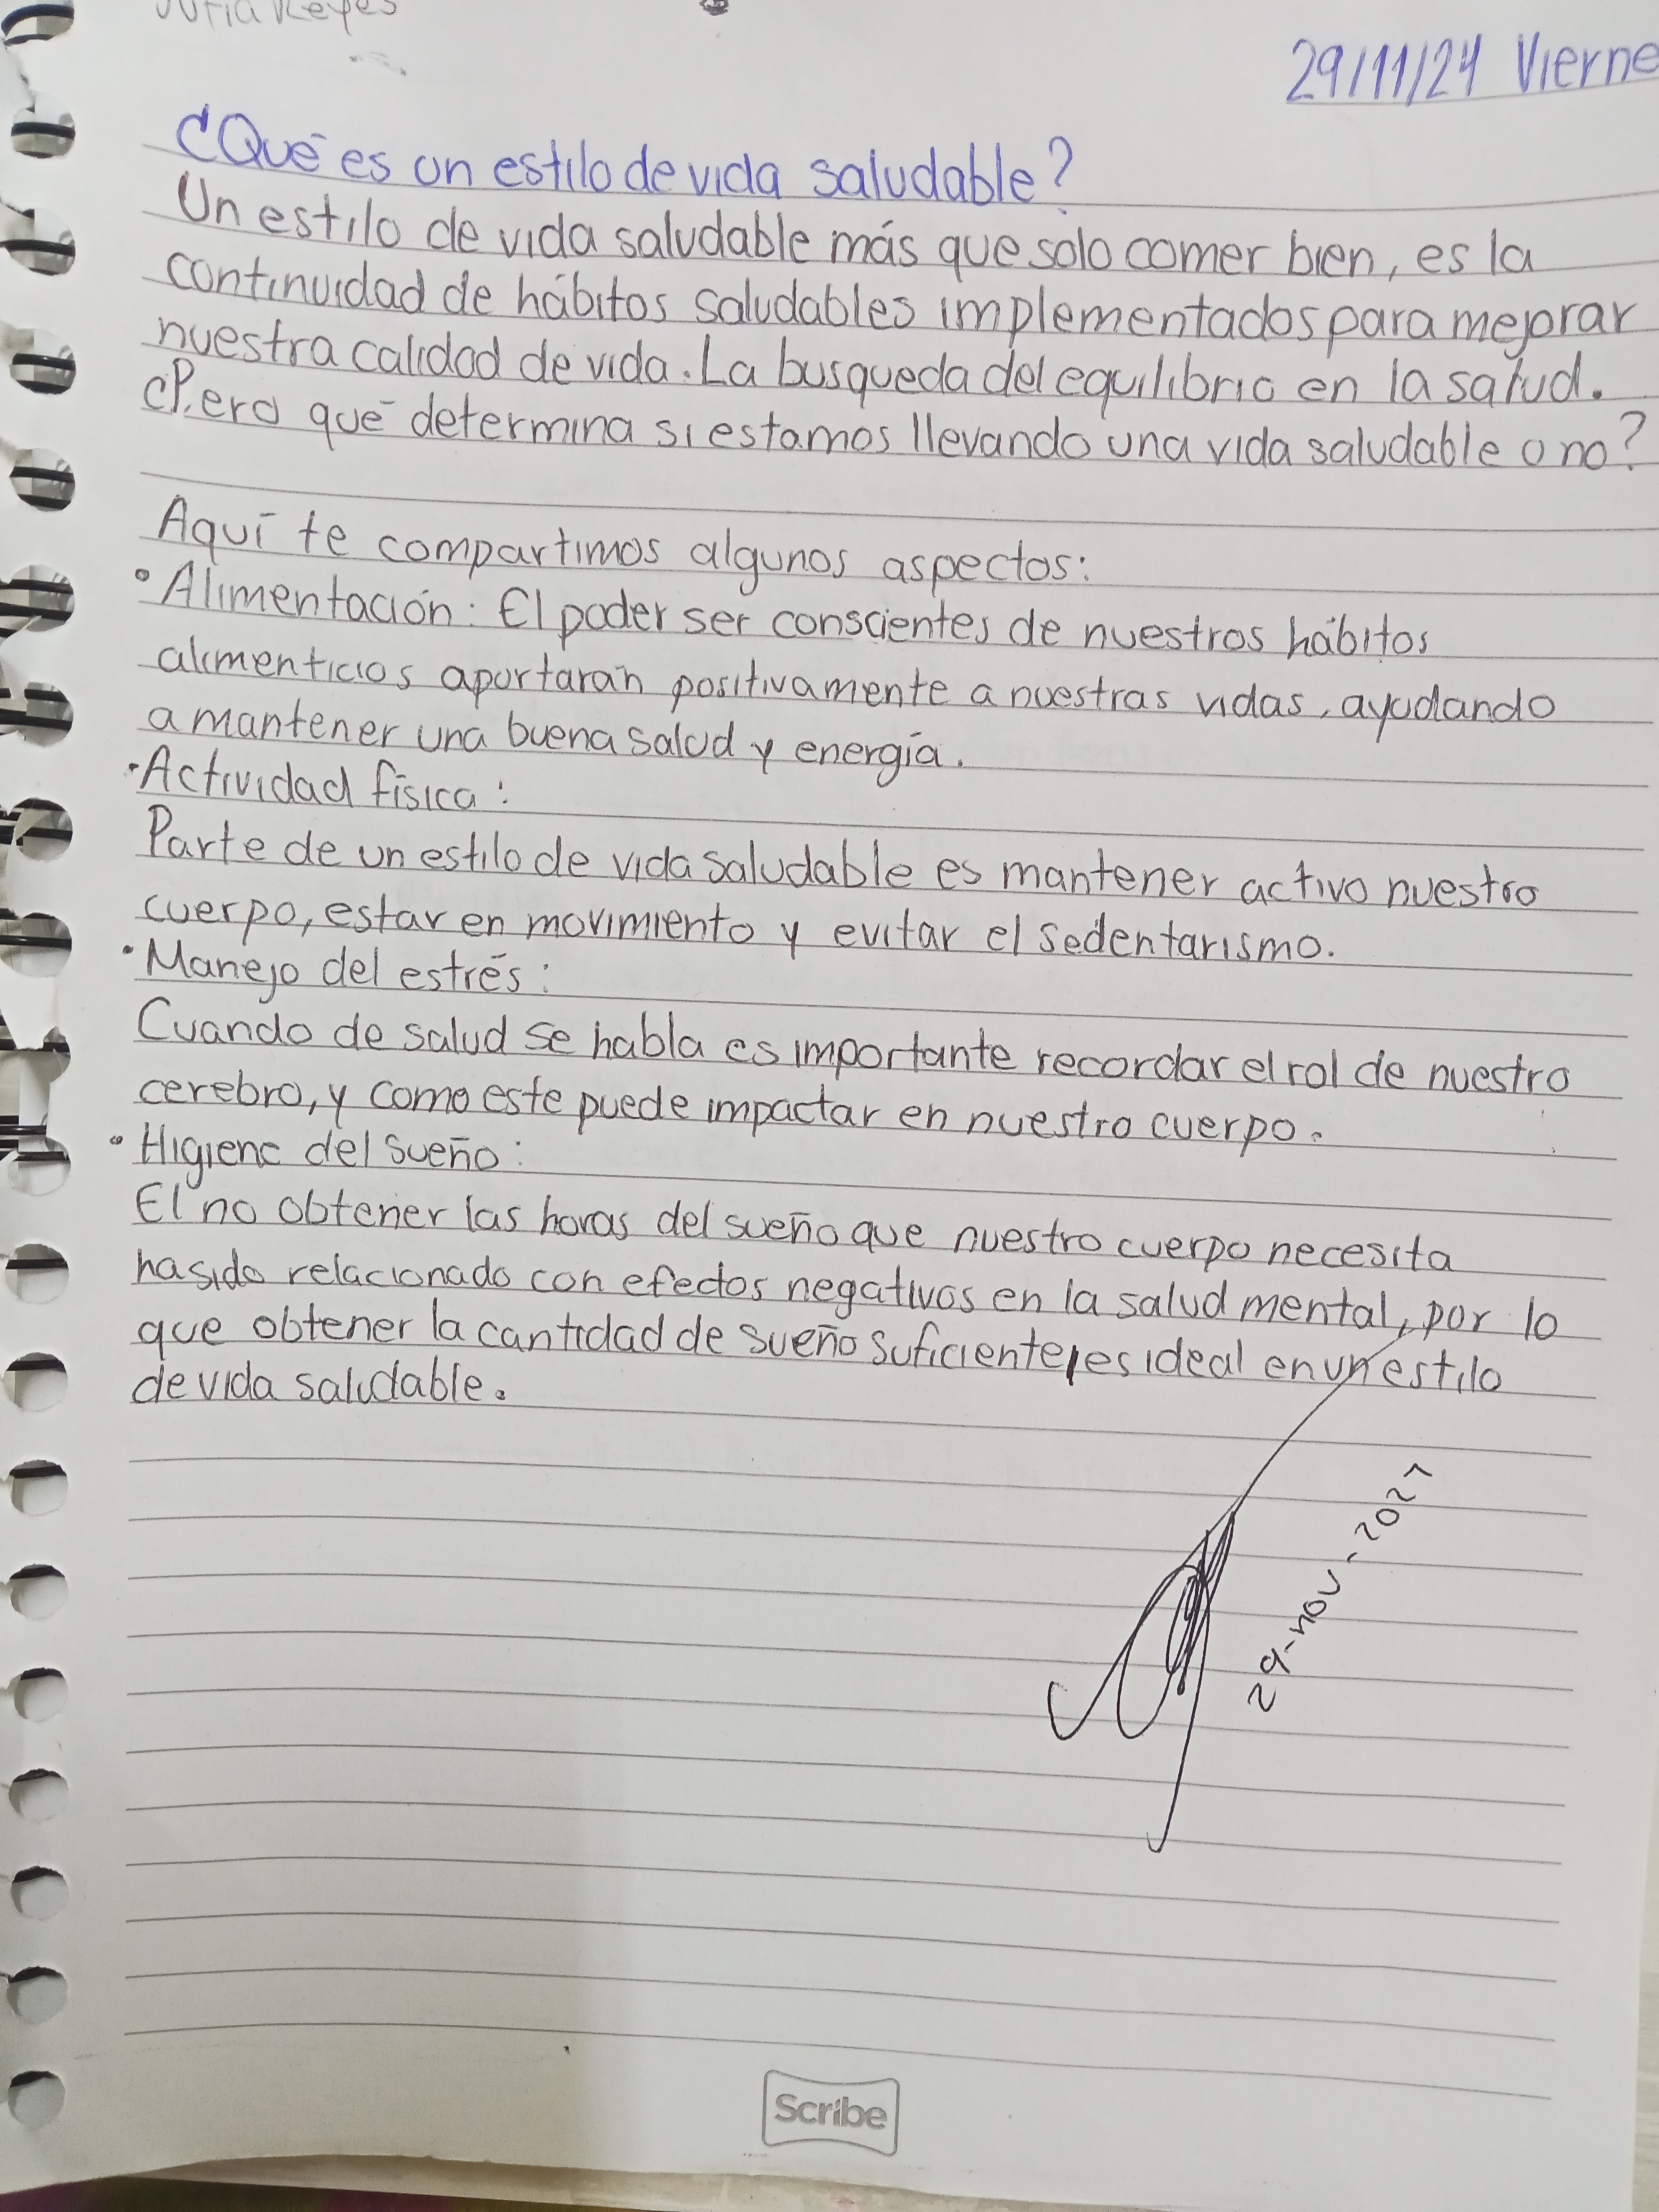 Reyes
29/11/24 Vierne
¿Qué es un estilo de vida saludable?
Un estilo de vida saludable más que solo comer bien, es la
continuidad de hábitos saludables implementados para mejorar
nuestra calidad de vida. La busqueda del equilibrio en la salud.
¿Pero qué determina si estamos llevando una vida saludable o no?
Aquí te compartimos algunos aspectos:
• Alimentación: El poder ser conscientes de nuestros hábitos
alimenticios aportarán positivamente a nuestras vidas, ayudando
a mantener una buena salud y energía.
• Actividad física:
Parte de un estilo de vida saludable es mantener activo nuestro
cuerpo, estar en movimiento y evitar el sedentarismo.
• Manejo del estrés:
Cuando de salud se habla es importante recordar el rol de nuestro
cerebro, y como este puede impactar en nuestro cuerpo.
• Higiene del sueño:
El no obtener las horas del sueño que nuestro cuerpo necesita
ha sido relacionado con efectos negativos en la salud mental, por lo
que obtener la cantidad de sueño suficiente, es ideal en un estilo
de vida saludable.
29-nov-2024
Scribe